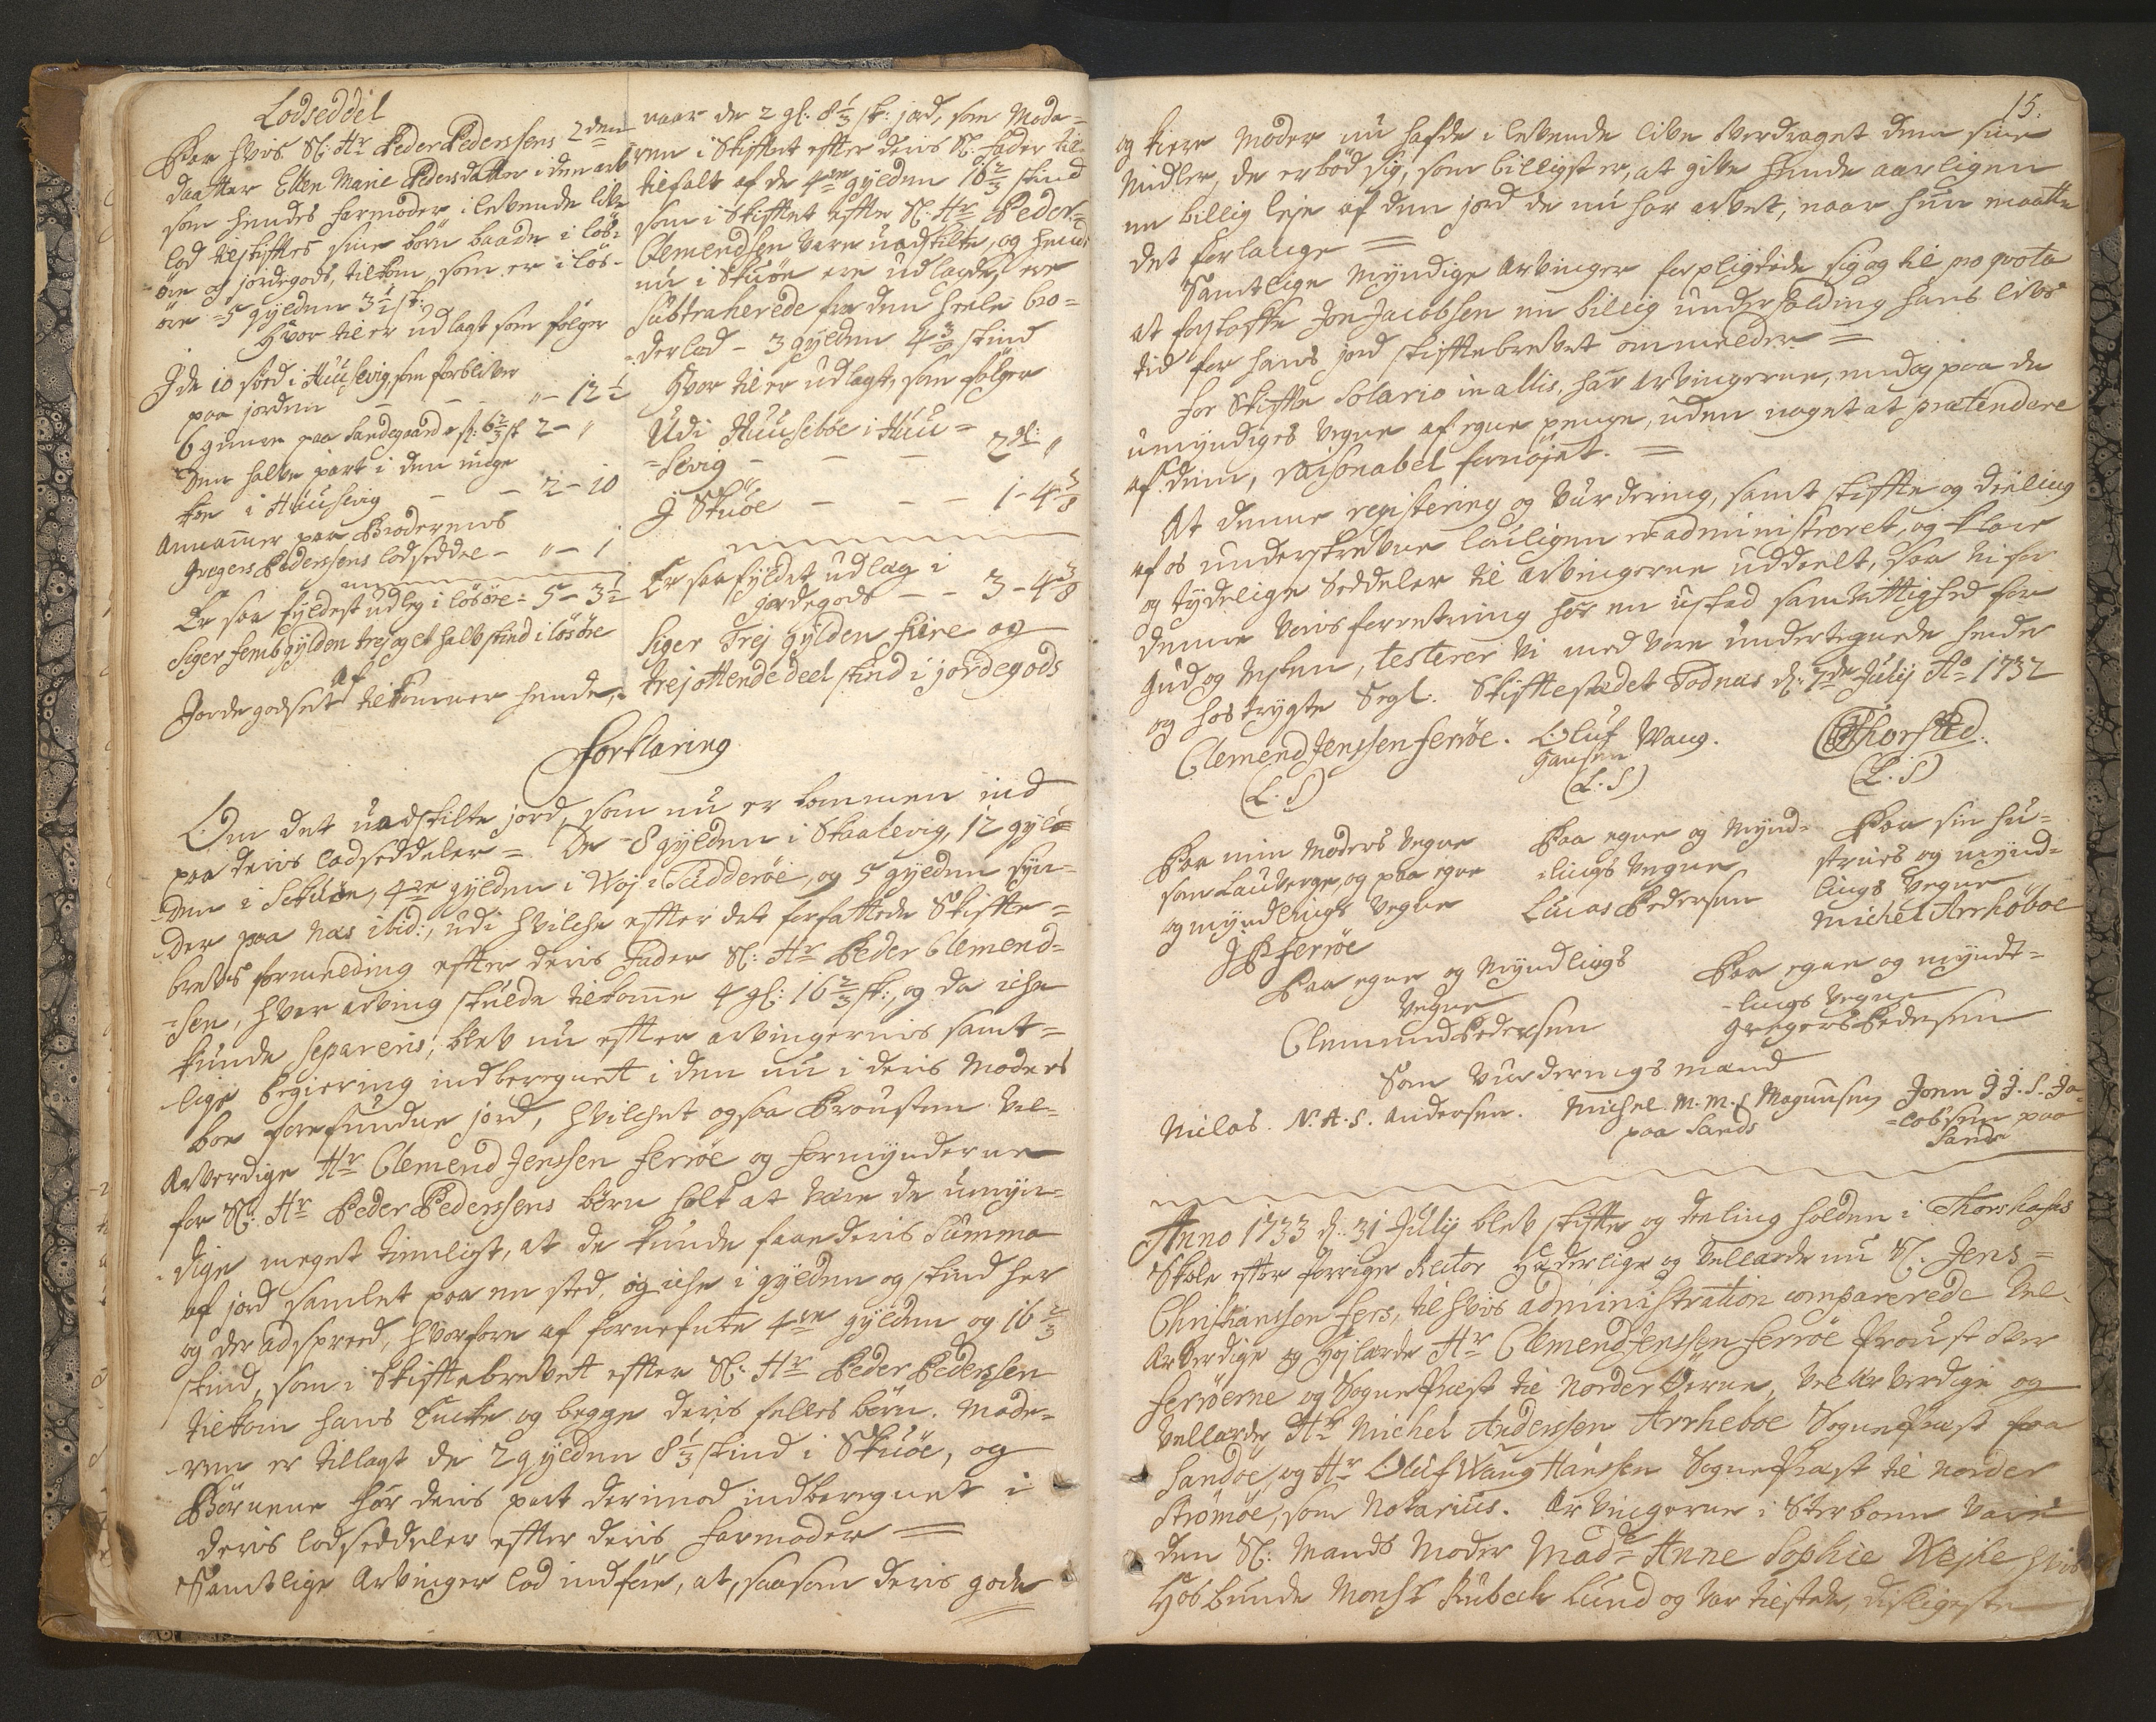 Lodseddel
Paa hvis Sl: Hr Peder Pederssens 2den
daatter Ellen Marie Pedersdatter i den arv
som hendes farmoder i levende live
lod tilskiftes sine börn baade i lös-
öre og jordegods, tilkom, som er i lös-
öre = 5 gylden 3½ sk:
Hvor til er udlagt som fölger
J de 10 sörd i Huusevig, som forbliver
paa jorden - - - " - 12½
6 gimre paa Sandsgaard a sk: 6⅔ sk 2 - "
Den halve part i den unge
koe i Huusevig - - 2 - 10
Annammer paa Broderens
Gregers Pederssens lodseddel - " - 1
Er saa fyldest udleg i lösöre = 5 - 3½
Siger femb gylden trej og et halv skind i lösöre
Af
Jordegodset tilkommer hende,
naar de 2 gl: 8⅓ sk: jord, som Mode-
ren i Skiftet efter deris Sl: Fader til-
tilfalt af de 4re gylden 16⅔ skind
som i Skiftet efter Sl: Hr Peder
Clemendsen vare uadskilte, og hende
nu i Skuöe ere udlagde, ere
subtraherede fra den heele bro-
derlod - 3 gylden 4⅜ skind
Hvor til er udlagt, som fölger
Udi Huuseböe i Huu-
sevig - - - 2 gl: "
J Skuöe - - - 1 - 4⅜
Er saa fyldest udlæg i
jordegods - - 3 - 4⅜
Siger Trej gylden fiire og
trej ottende deel skind i jordegods
Forklaring
Om det uadskilte jord, som nu er kommen ind
paa deris lodseddeler = De 8 gylden i Skaalevig, 12 gyl-
den i Skuöe, 4re gylden i Woj i Tudderöe, og 5 gylden syn-
der paa Næs ibid:, udi hvilche efter det forfattede Skifte-
brevs formelding efter deris Fader Sl: Hr Peder Clemend-
sen, hver arving skulde tilkomme 4 gl: 16⅔ sk:, og da iche
kunde separeris, blev nu efter arvingernis samt-
lige begiering indberegnet i den nu i deris Moders
boe forefundne jord, hvilchet ogsaa Prousten Vel-
Ærverdige Hr Clemend Jenssen Ferröe og formynderne
for Sl: Hr Peder Pederssens börn holt at være de umyn-
dige meget tienligst, at de kunde faae deris Summa
af jord samlet paa en sted, og iche i gylden og skind her
og der adspreed, hvorfore af fornefnte 4re gylden og 16⅔
skind, som i Skiftebrevet efter Sl: Hr Peder Pederssen
tilkom hans Encke og begge deris felles börn. Mode-
ren er tillagt de 2 gylden 8⅓ skind i Skuöe, og
Börnene har deris part derimod indberegnet i
deris lodseddeler efter deris farmoder =
Samtlige Arvinger lod indföre, at, saasom deris gode
15.
og kiere Moder nu hafde i levende live overdraget dem sine
Midler, de erböd sig, som billigst er, at give hende aarligen
en billig leje af den jord de nu har arvet, naar hun maatte
det forlange =
Samtlige Myndige Arvinger forpligtede sig og til pro qvota
at forskaffe Jon Jacobsen en billig underholding hans livs
tid for hans jord skiftebrevet ommelder =
For Skifte Solario in allis, har Arvingerne, endog paa de
umyndiges vegne af egne penge, uden noget at prætendere
af dem, raisonabel fornöjet. =
At denne registering og Vurdering, samt skifte og deeling
af os underskrevne lovligen er administreret, og klare
og tydelige Seddeler til Arvingerne uddeelt, saa vi for
denne voris forretning har en ustad samvittighed for
Gud og Nesten, testerer vi med vore undertegnede hender
og hostrygte Segl. Skiftestedet Todnæs d: 7de Julij Ao 1732
Clemend Jenssen Ferröe. Oluf Wang. Thorsted.
Hansen
(L.S) (L.S) (L.S)
Paa min Moders vegne
som Lauverge, og paa egne
og myndlings vegne
J P Ferröe
Paa egne og Mynd-
lings vegne
Lucas Pedersen
Paa sin hu-
strues og mynd-
lings vegne
Michel Arrhöboe
Paa egne og Myndlings
vegne
Clemend Pedersen
Paa egne og myndt-
lings vegne
Gregers Pedersen
Som Vurderings mænd
Niclas. N.A.S. Andersen. Michel M.M.S Magnusen
paa Sands
Jonn J J.S. Ja-
cobsen paa
Sands
Anno 1733 d: 31 Julij blev skifte og deeling holden i Thorshafns
Skole efter forrige Rector Hæderlige og Vellærde nu Sl. Jens
Christianssen Fers, til hvis administration comparerede Vel-
Ærverdige og höjlærde Hr Clemend Jenssen Ferröe Proust över
Ferröerne og Sogne Præst til Norder Öerne, Vel Ærverdige og
Vellærde Hr Michel Anderssen Arrheboe Sogne Præst paa
Sandöe, og Hr Oluf Wang Hanssen Sogne Præst til Norder
Strömöe, som Notarius. Arvingerne i Sterboen vare
den Sl: Mands Moder Mad: Anne Sophie Wejhe hvis
Hosbunde Monsr Rubech Lund og var tilstede, disligeste